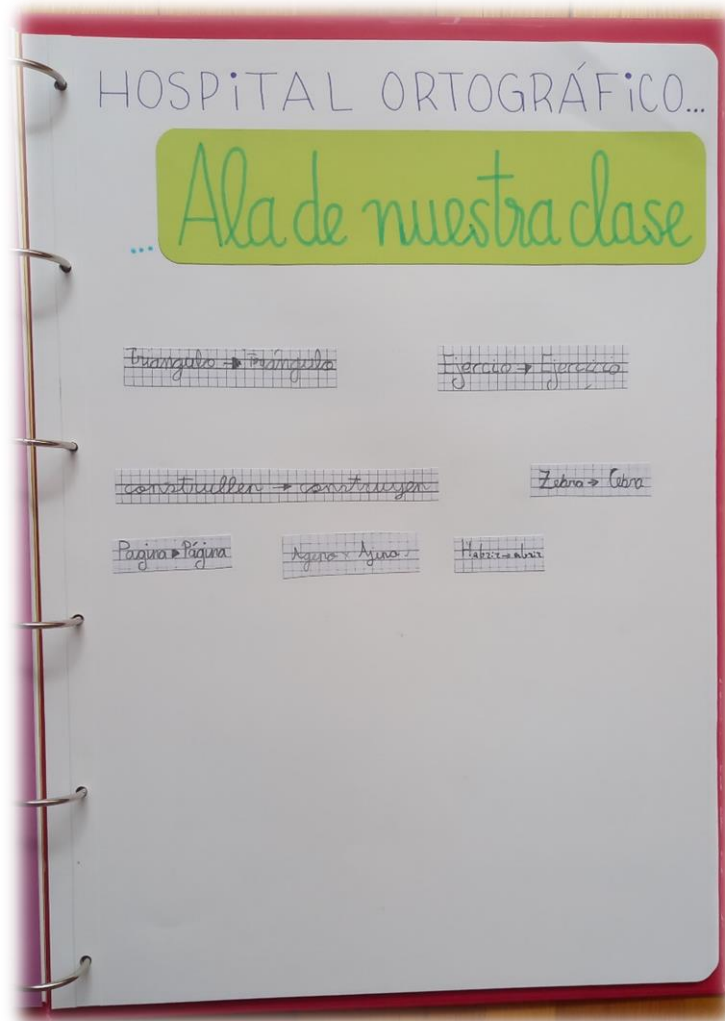 HOSPiTAL ORTOGRÁFiCO...
... Ala de nuestra clase
Triangulo → Triángulo
Ejercio → Ejercicio
construllen → construyen
Zebra → Cebra
Pagina → Página
Habrir → abrir